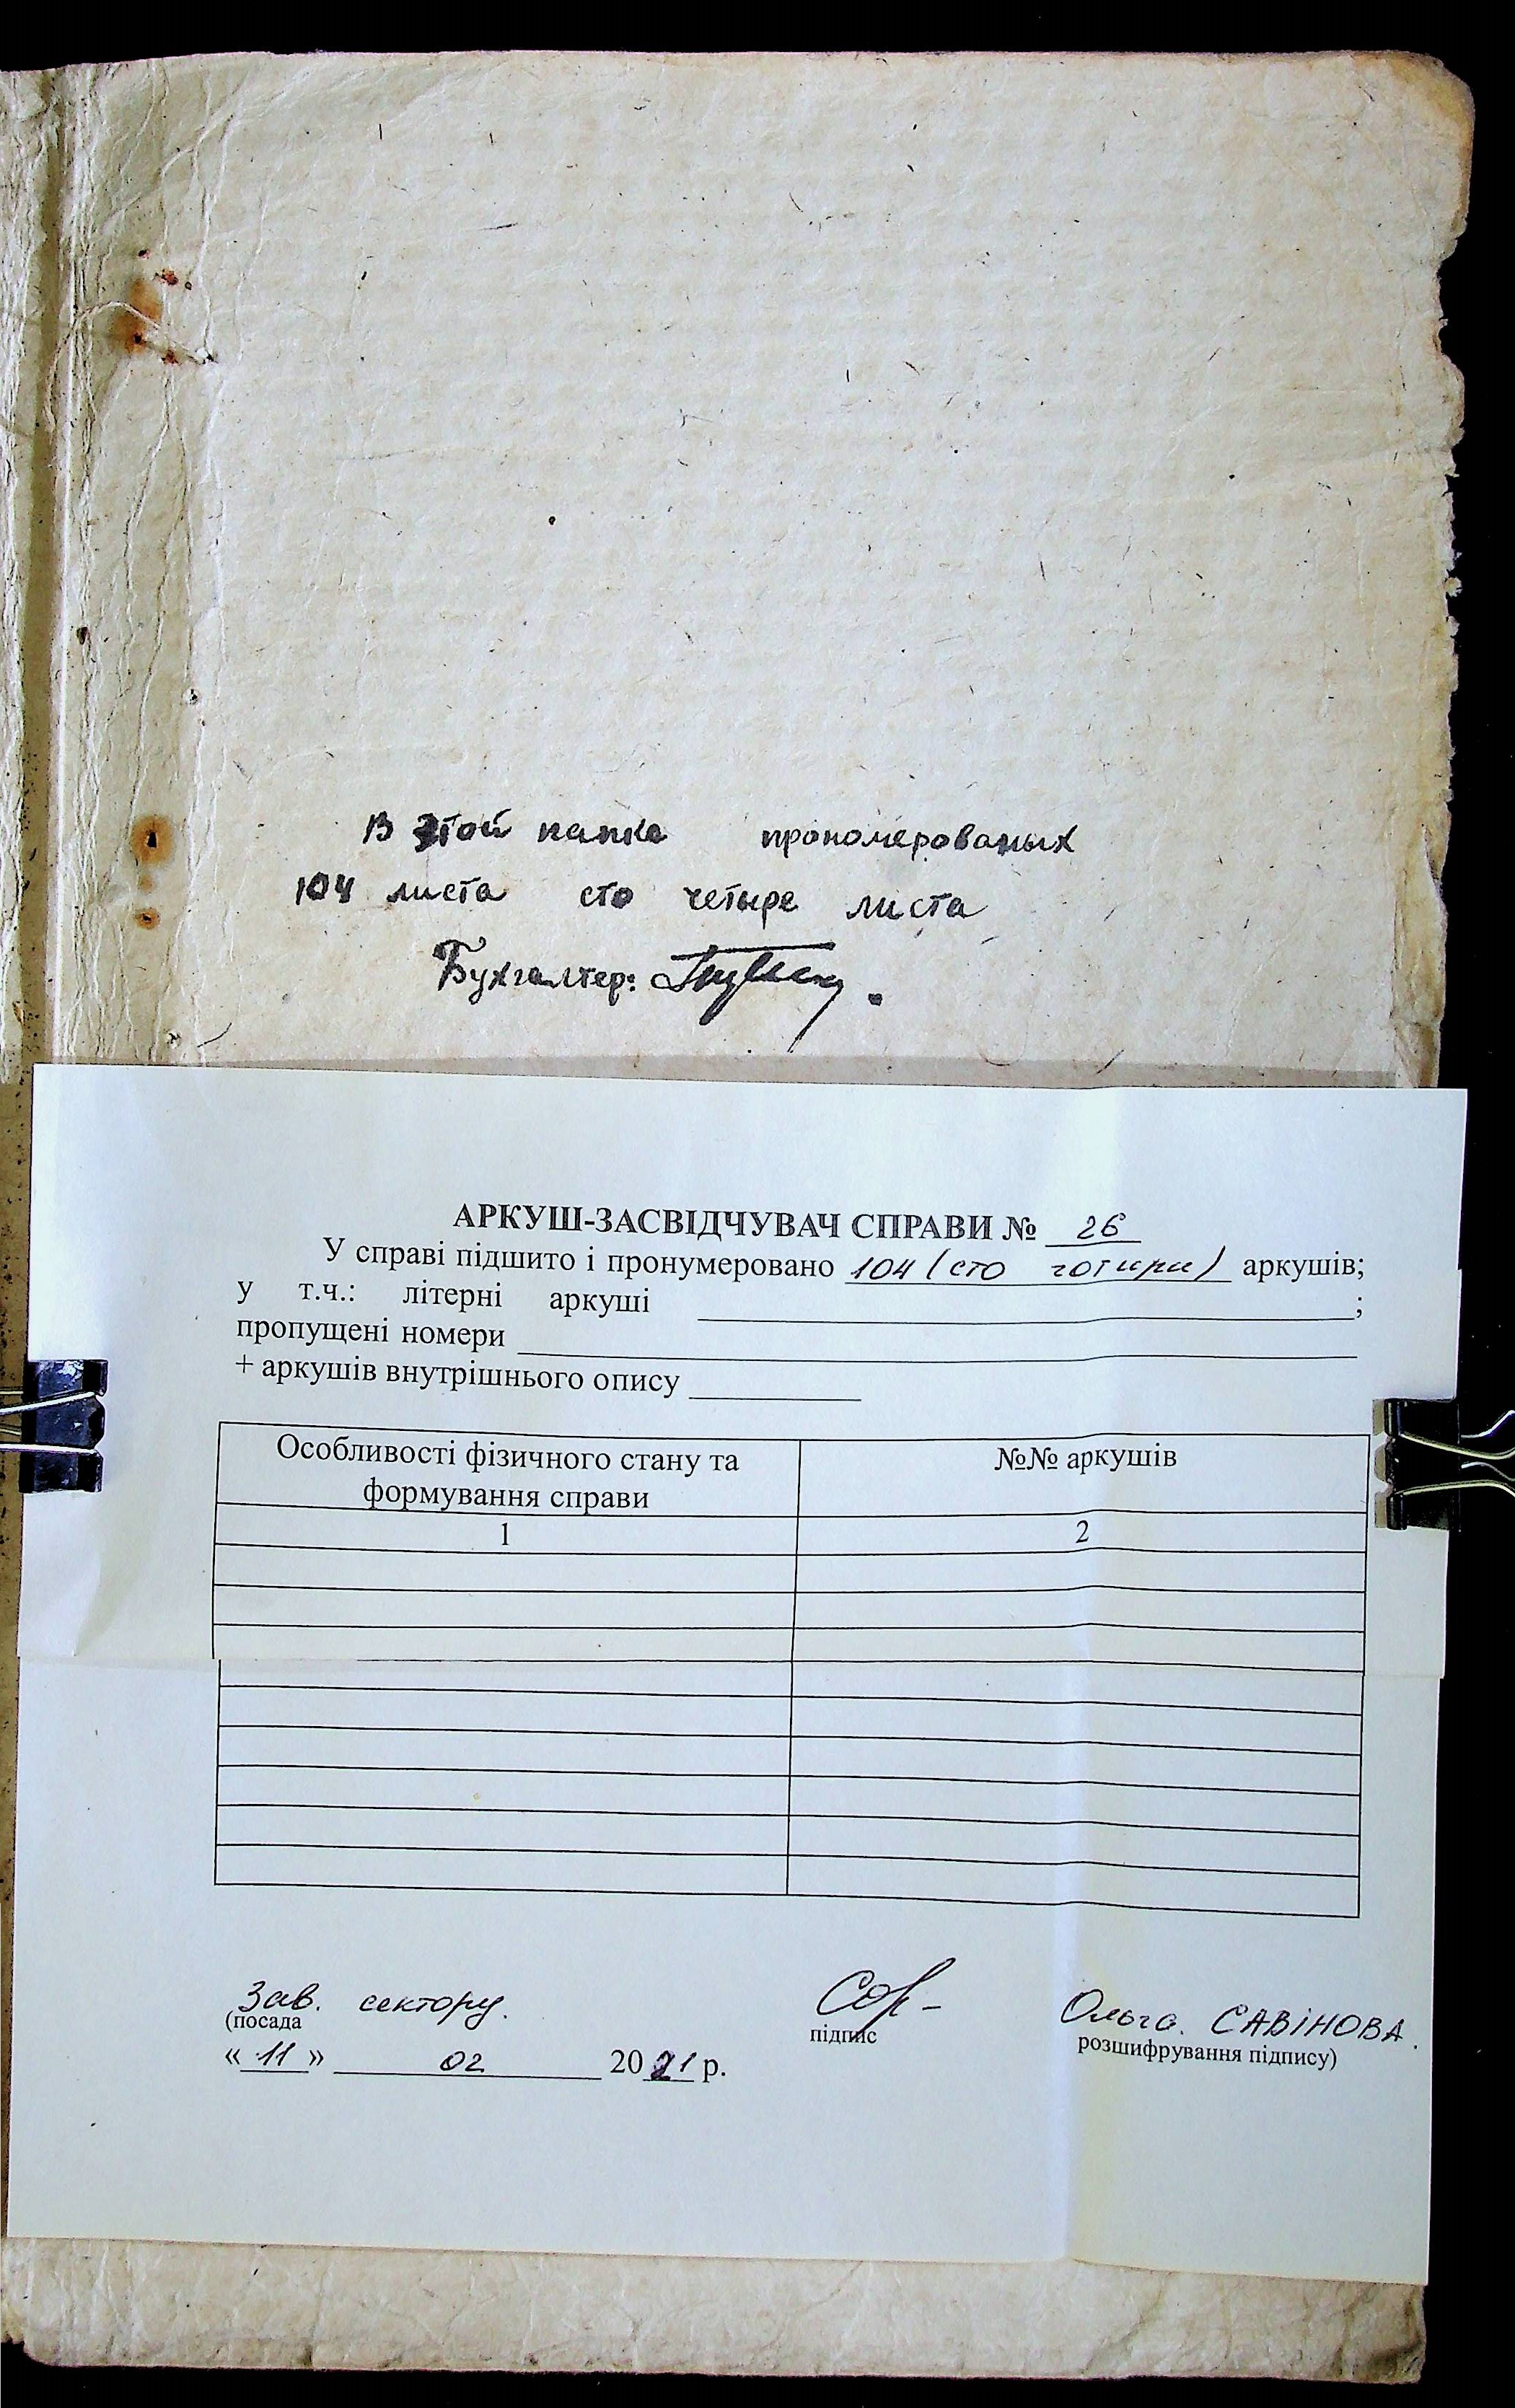 В этой папке прономерованых
104 листа сто четыре листа
Бухгалтер:
АРКУШ-ЗАСВІДЧУВАЧ СПРАВИ № 26
У справі підшито і пронумеровано 104 (сто чотири) аркушів;
у т.ч.: літерні аркуші ;
пропущені номери
+ аркушів внутрішнього опису
Особливості фізичного стану та
формування справи
№№ аркушів
1
2
Зав. сектору.
Ольга САВІНОВА.
(посада
підпис
розшифрування підпису)
« 11 » 02 2021 р.